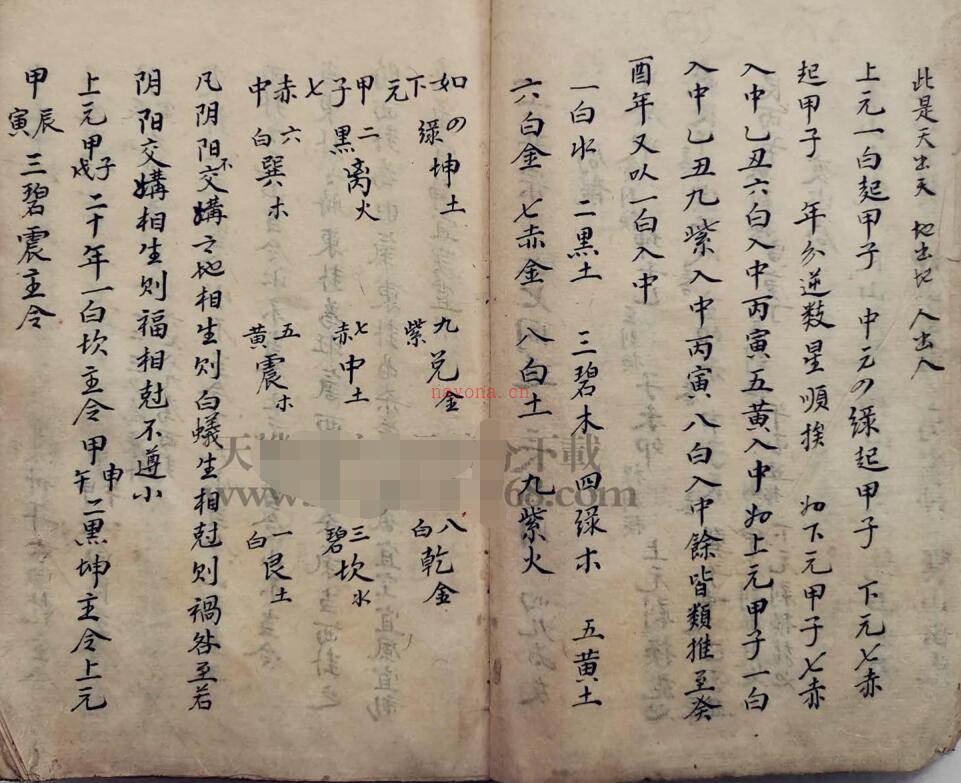 此是天出天 地出地 人出人
上元一白起甲子 中元四绿起甲子 下元七赤
起甲子 年分逆数星順挨 如下元甲子七赤
入中乙丑六白入中丙寅五黄入中如上元甲子一白
入中乙丑九紫入中丙寅八白入中餘皆類推至癸
酉年又以一白入中
一白水 二黑土 三碧木 四绿木 五黄土
六白金 七赤金 八白土 九紫火
如四绿坤土 九紫兑金 八白乾金
下元甲子七赤中 二黑离火 七赤中土 三碧坎水
六白巽木 五黄震木 一白艮土
凡阴阳不交媾之地相生则白蟻生相尅则禍咎至若
阴阳交媾相生则福相尅不遵小
上元甲子戌二十年一白坎主令甲申午二黑坤主令上元
甲辰寅三碧震主令
nayona.cn
天 下載
www. 68.com